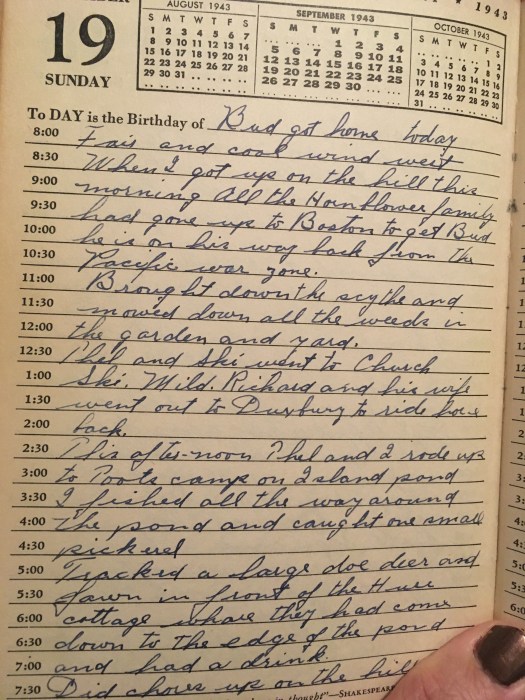 1943
19
SUNDAY
AUGUST 1943
S M T W T F S
1 2 3 4 5 6 7
8 9 10 11 12 13 14
15 16 17 18 19 20 21
22 23 24 25 26 27 28
29 30 31 .. .. .. ..
SEPTEMBER 1943
S M T W T F S
.. .. .. 1 2 3 4
5 6 7 8 9 10 11
12 13 14 15 16 17 18
19 20 21 22 23 24 25
26 27 28 29 30 .. ..
OCTOBER 1943
S M T W T F S
.. .. .. .. .. 1 2
3 4 5 6 7 8 9
10 11 12 13 14 15 16
17 18 19 20 21 22 23
24 25 26 27 28 29 30
31 .. .. .. .. .. ..
To DAY is the Birthday of Bud got home today
8:00 Fair and cool wind west
8:30 When I got up on the hill this
9:00 morning All the Hornblower family
9:30 had gone up to Boston to get Bud
10:00 he is on his way back from the
10:30 Pacific war zone.
11:00 Brought down the scythe and
11:30 mowed down all the weeds in
12:00 the garden and yard.
12:30 Phel and Ski went to Church
1:00 Ski. Mild. Richard and his wife
1:30 went out to Duxbury to ride horse
2:00 back.
2:30 This after-noon Phel and I rode up
3:00 to Poots camp on Island pond
3:30 I fished all the way around
4:00 the pond and caught one small
4:30 pickerel
5:00 Tracked a large doe deer and
5:30 fawn in front of the
6:00 cottage whare they had come
6:30 down to the edge of the pond
7:00 and had a drink
7:30 Did chores up on the hill
in thought"—SHAKESPEARE